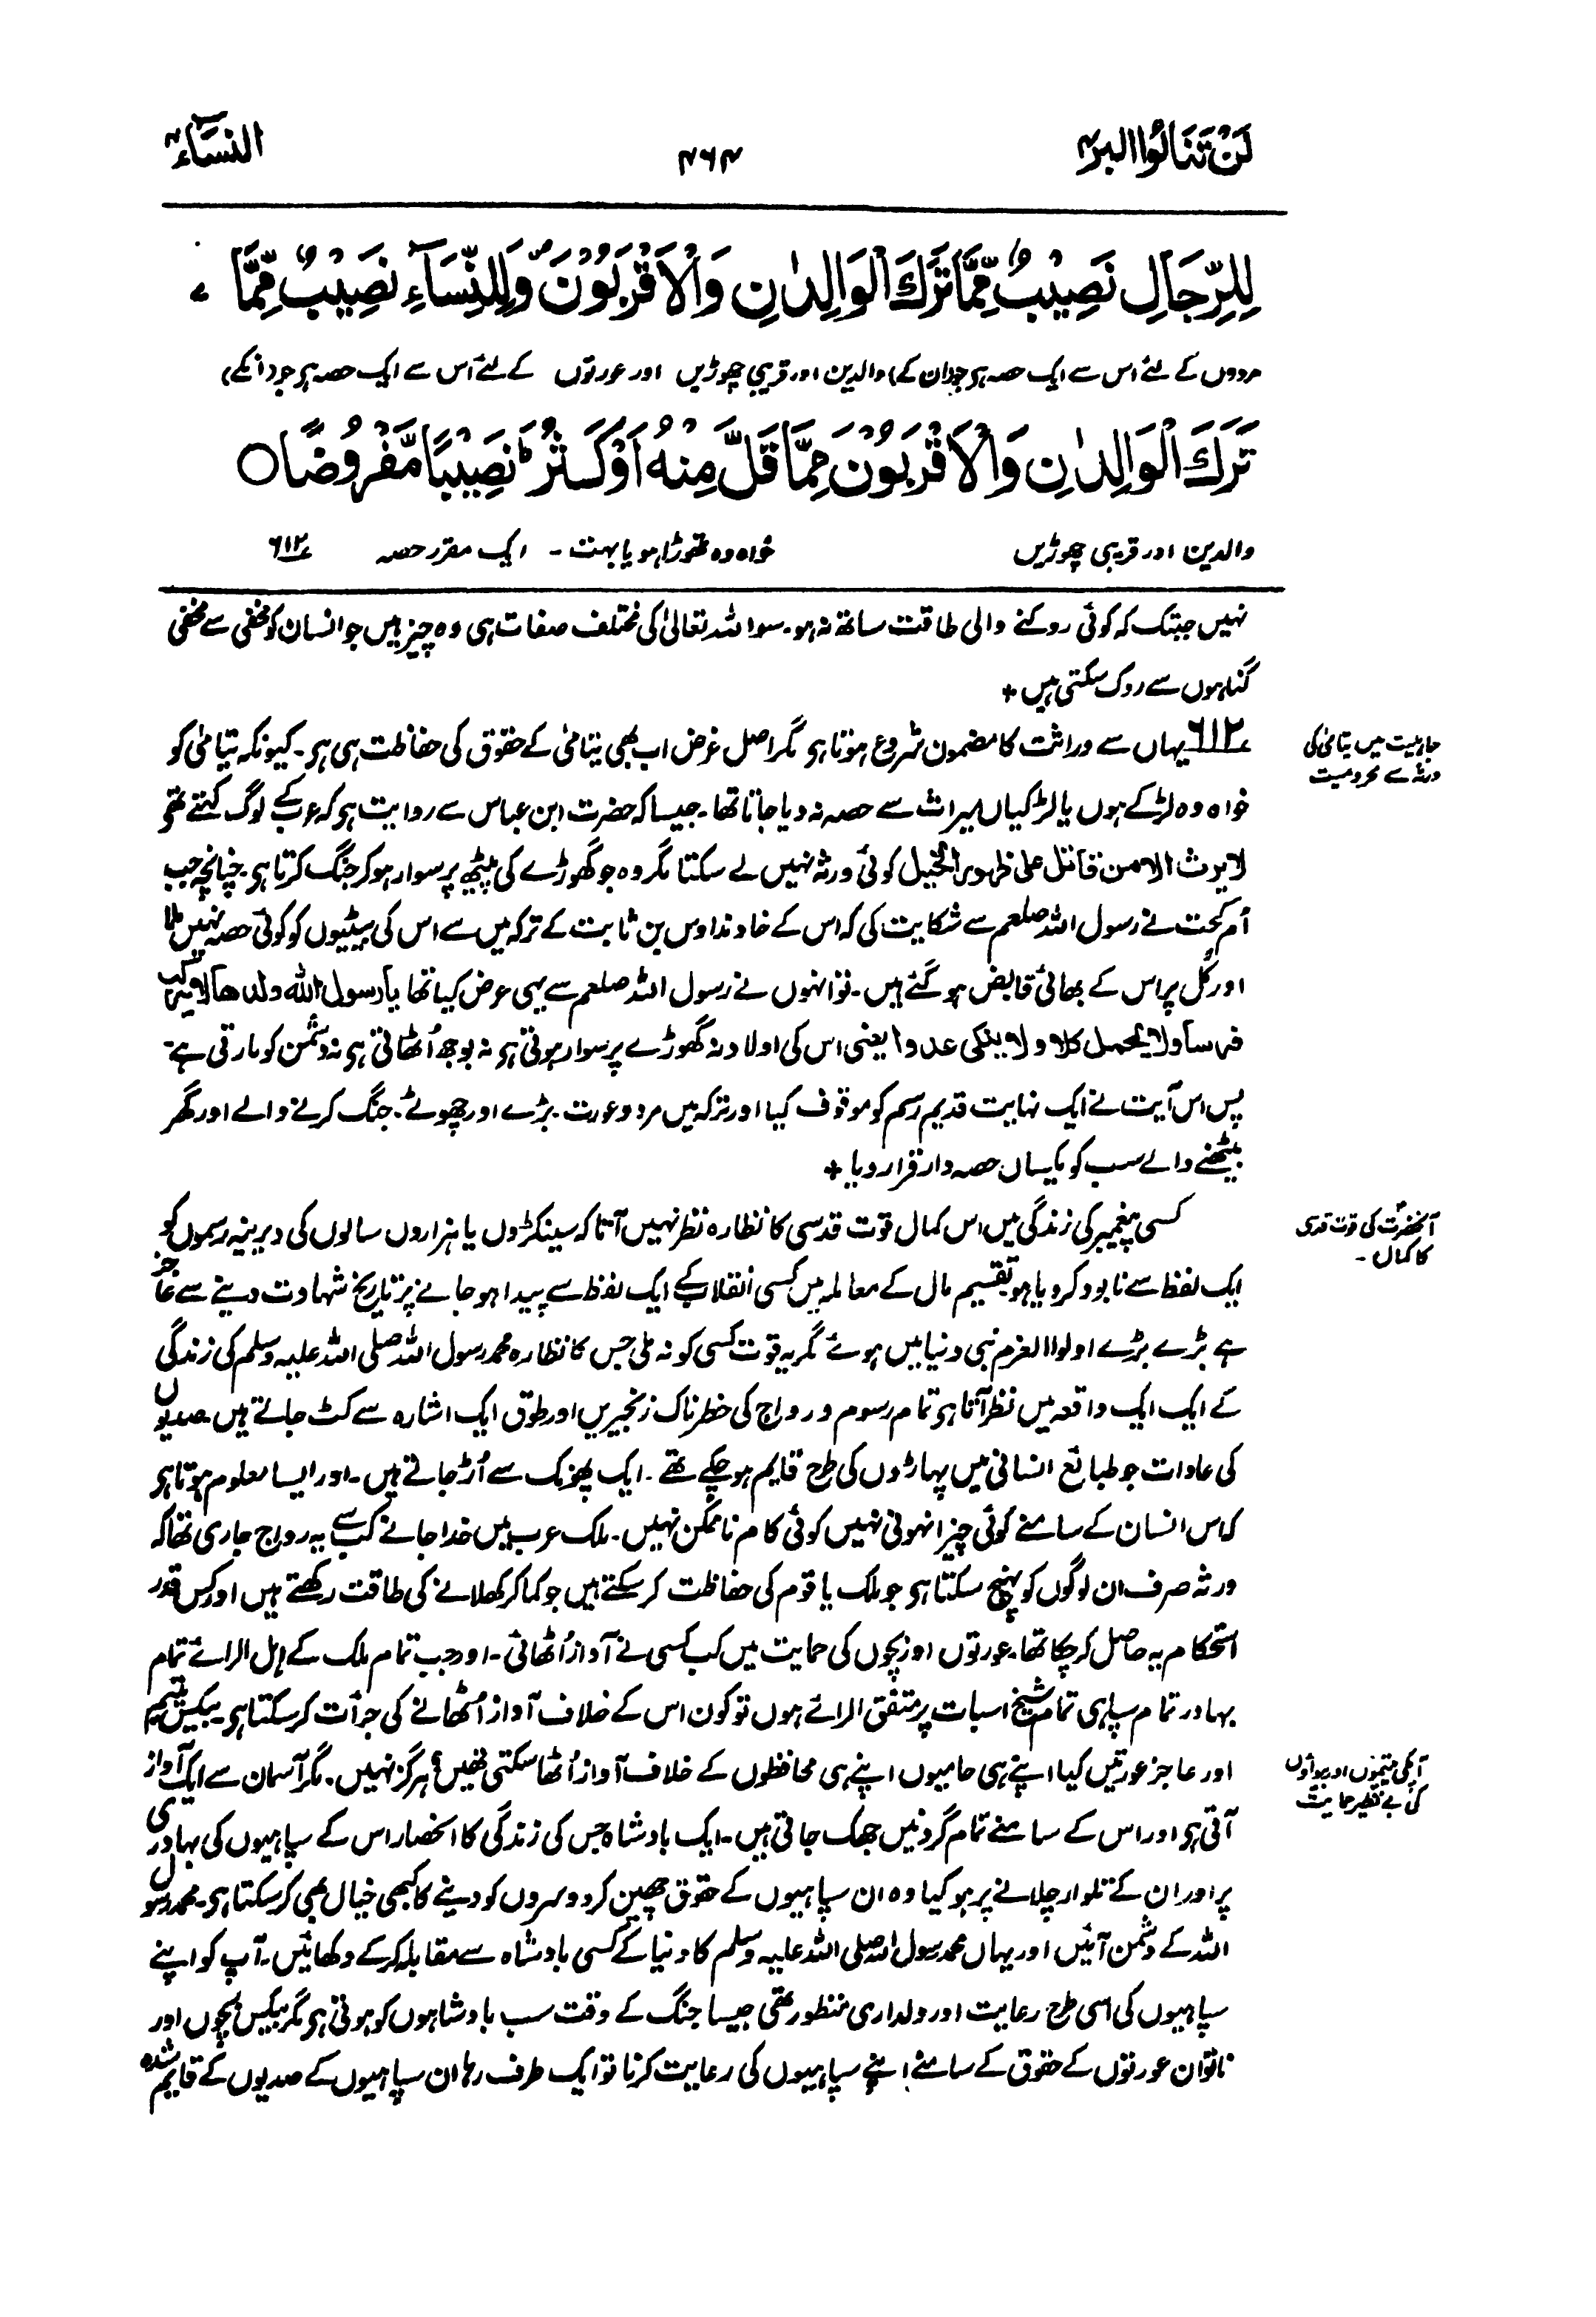 لَنْ تَنَالُوا البر ۴
۴۶۴
النسآء ۴
لِلرِّجَالِ نَصِيْبٌ مِّمَّا تَرَكَ الْوَالِدٰنِ وَالْاَقْرَبُوْنَ ۪ وَلِلنِّسَآءِ نَصِيْبٌ مِّمَّا
مردوں کے لئے اس سے ایک حصہ ہی جو (ان کے) والدین اور قریبی چھوڑیں اور عورتوں کے لئے اس سے ایک حصہ ہی جو (انکے)
تَرَكَ الْوَالِدٰنِ وَالْاَقْرَبُوْنَ مِمَّا قَلَّ مِنْهُ اَوْ كَثُرَ ؕ نَصِيْبًا مَّفْرُوْضًا ○
والدین اور قریبی چھوڑیں خواہ وہ تھوڑا ہو یا بہت - ایک مقرر حصہ ۶۱۲
نہیں جبتک کہ کوئی روکنے والی طاقت ساتھ نہ ہو۔ سو اللہ تعالیٰ کی مختلف صفات ہی وہ چیز ہیں جو انسان کو مخفی سے مخفی
گناہوں سے روک سکتی ہیں +
۶۱۲ یہاں سے وراثت کا مضمون شروع ہوتا ہی مگر اصل غرض اب بھی یتامیٰ کے حقوق کی حفاظت ہی ہی۔ کیونکہ یتامیٰ کو
جاہلیت میں یتامیٰ کی
ورثہ سے محرومیت
خواہ وہ لڑکے ہوں یا لڑکیاں میراث سے حصہ نہ دیا جاتا تھا۔ جیسا کہ حضرت ابن عباس سے روایت ہی کہ عرب کے لوگ کہتے تھے
لا یرث الا من قاتل علی ظہور الخیل کوئی ورثہ نہیں لے سکتا مگر وہ جو گھوڑے کی پیٹھ پر سوار ہو کر جنگ کرتا ہی۔ چنانچہ جب
اُم کُحّت نے رسول اللہ صلعم سے شکایت کی کہ اس کے خاوند اوس بن ثابت کے ترکہ میں سے اس کی بیٹیوں کو کوئی حصہ نہیں ملا
اور کُل پر اس کے بھائی قابض ہو گئے ہیں۔ تو انہوں نے رسول اللہ صلعم سے یہی عرض کیا تھا یا رسول اللہ ولدھا لا یرکب
فرسا ولا یحمل کلا ولا ینکی عدوا یعنی اس کی اولاد نہ گھوڑے پر سوار ہوتی ہی نہ بوجھ اُٹھاتی ہی نہ دشمن کو مارتی ہے۔
پس اس آیت نے ایک نہایت قدیم رسم کو موقوف کیا اور ترکہ میں مرد و عورت۔ بڑے اور چھوٹے۔ جنگ کرنے والے اور گھر
بیٹھنے والے سب کو یکساں حصہ دار قرار دیا +
کسی پیغمبر کی زندگی میں اس کمال قوت قدسی کا نظارہ نظر نہیں آتا کہ سینکڑوں یا ہزاروں سالوں کی دیرینہ رسموں کو
آنحضرتؐ کی قوت قدسی
کا کمال -
ایک لفظ سے نابود کر دیا ہو۔ تقسیم مال کے معاملہ میں کسی انقلاب کے ایک لفظ سے پیدا ہو جانے پر تاریخ شہادت دینے سے عاجز
ہے بڑے بڑے اولوا العزم نبی دنیا میں ہوئے مگر یہ قوت کسی کو نہ ملی جس کا نظارہ محمد رسول اللہ صلی اللہ علیہ وسلم کی زندگی
کے ایک ایک واقعہ میں نظر آتا ہی تمام رسوم و رواج کی خطرناک زنجیریں اور طوق ایک اشارہ سے کٹ جاتے ہیں۔ صدیوں
کی عادات جو طبائع انسانی میں پہاڑوں کی طرح قایم ہو چکے تھے۔ ایک پھونک سے اُڑ جاتے ہیں۔ اور ایسا معلوم ہوتا ہی
کہ اس انسان کے سامنے کوئی چیز انہونی نہیں کوئی کام ناممکن نہیں۔ ملک عرب میں خدا جانے کب سے یہ رواج جاری تھا کہ
ورثہ صرف ان لوگوں کو پہنچ سکتا ہی جو ملک یا قوم کی حفاظت کر سکتے ہیں جو کما کر کھلانے کی طاقت رکھتے ہیں اور کس قدر
استحکام یہ حاصل کر چکا تھا۔ عورتوں اور بچوں کی حمایت میں کب کسی نے آواز اُٹھائی۔ اور جب تمام ملک کے اہل الرائے تمام
بہادر تمام سپاہی تمام شیخ اسبات پر متفق الرائے ہوں تو کون اس کے خلاف آواز اُٹھانے کی جرأت کر سکتا ہی۔ بیکس یتیم
اور عاجز عورتیں کیا اپنے ہی حامیوں اپنے ہی محافظوں کے خلاف آواز اُٹھا سکتی تھیں؟ ہرگز نہیں۔ مگر آسمان سے ایک آواز
آپ کی یتیموں اور بیواؤں
کی بے نظیر حمایت
آتی ہی اور اس کے سامنے تمام گردنیں جھک جاتی ہیں۔ ایک بادشاہ جس کی زندگی کا انحصار اس کے سپاہیوں کی بہادری
پر اور ان کے تلوار چلانے پر ہو کیا وہ ان سپاہیوں کے حقوق چھین کر دوسروں کو دینے کا کبھی خیال بھی کر سکتا ہی۔ محمد رسول
اللہ کے دشمن آئیں اور یہاں محمد رسول اللہ صلی اللہ علیہ وسلم کا دنیا کے کسی بادشاہ سے مقابلہ کر کے دکھائیں۔ آپ کو اپنے
سپاہیوں کی اسی طرح رعایت اور دلداری منظور تھی جیسا جنگ کے وقت سب بادشاہوں کو ہوتی ہی مگر بیکس بچوں اور
ناتوان عورتوں کے حقوق کے سامنے اپنے سپاہیوں کی رعایت کرنا تو ایک طرف رہا ان سپاہیوں کے صدیوں کے قایم شدہ